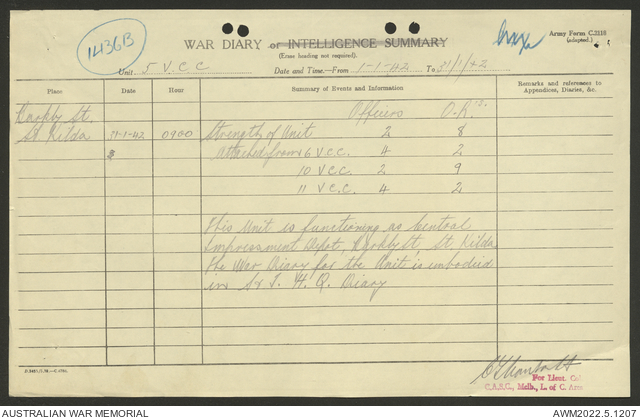 1436B
WAR DIARY or INTELLIGENCE SUMMARY
(Erase heading not required).
Army Form C.2118
(adapted.)
Unit 5 V.C.C. Date and Time—From 1-1-42 To 31/1/42
Place Date Hour Summary of Events and Information Remarks and references to
Appendices, Diaries, &c.
Officers O.R's.
Barkly St.
St. Kilda 31-1-42 0900 Strength of Unit 2 8
Attached from 6 V.C.C. 4 2
10 V.C.C. 2 9
11 V.C.C. 4 2
This Unit is functioning as Central
Impressment Depot, Barkly St. St. Kilda
The War Diary for the Unit is embodied
in H.Q. Diary
For Lieut. Col.
C.A.S.C., Melb., L. of C. Area
AUSTRALIAN WAR MEMORIAL
AWM2022.5.1207